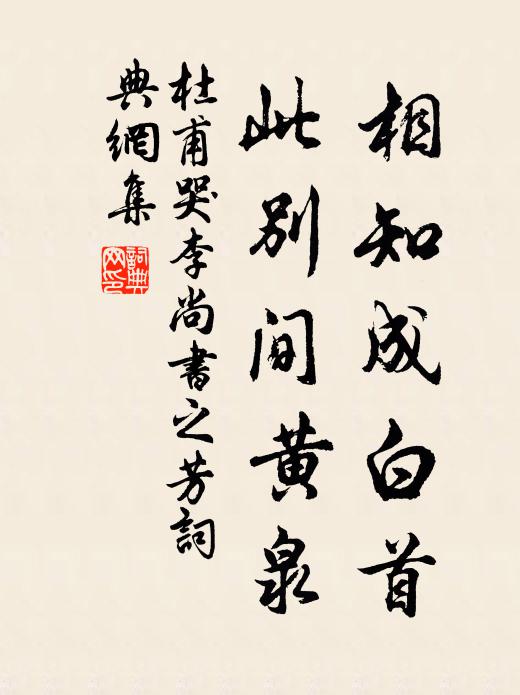 相知成白首
此别间黄泉
杜甫哭李尚書之芳詞
典網集
詞典
网印